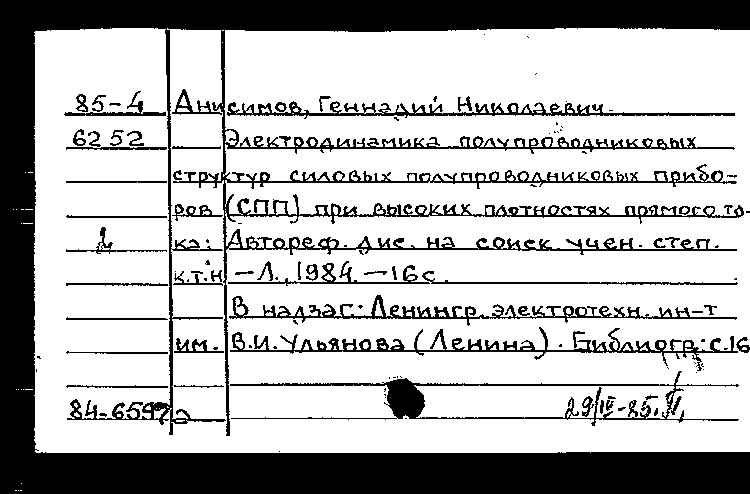 85-4 Анисимов, Геннадий Николаевич.
6252 Электродинамика полупроводниковых
структур силовых полупроводниковых прибо-
ров (СПП) при высоких плотностях прямого то-
ка: Автореф. дис. на соиск. учен. степ.
к.т.н. - Л., 1984. - 16 с.
В надзаг: Ленингр. электротехн. ин-т
им. В.И. Ульянова (Ленина). Библиогр: с. 16
84-6597